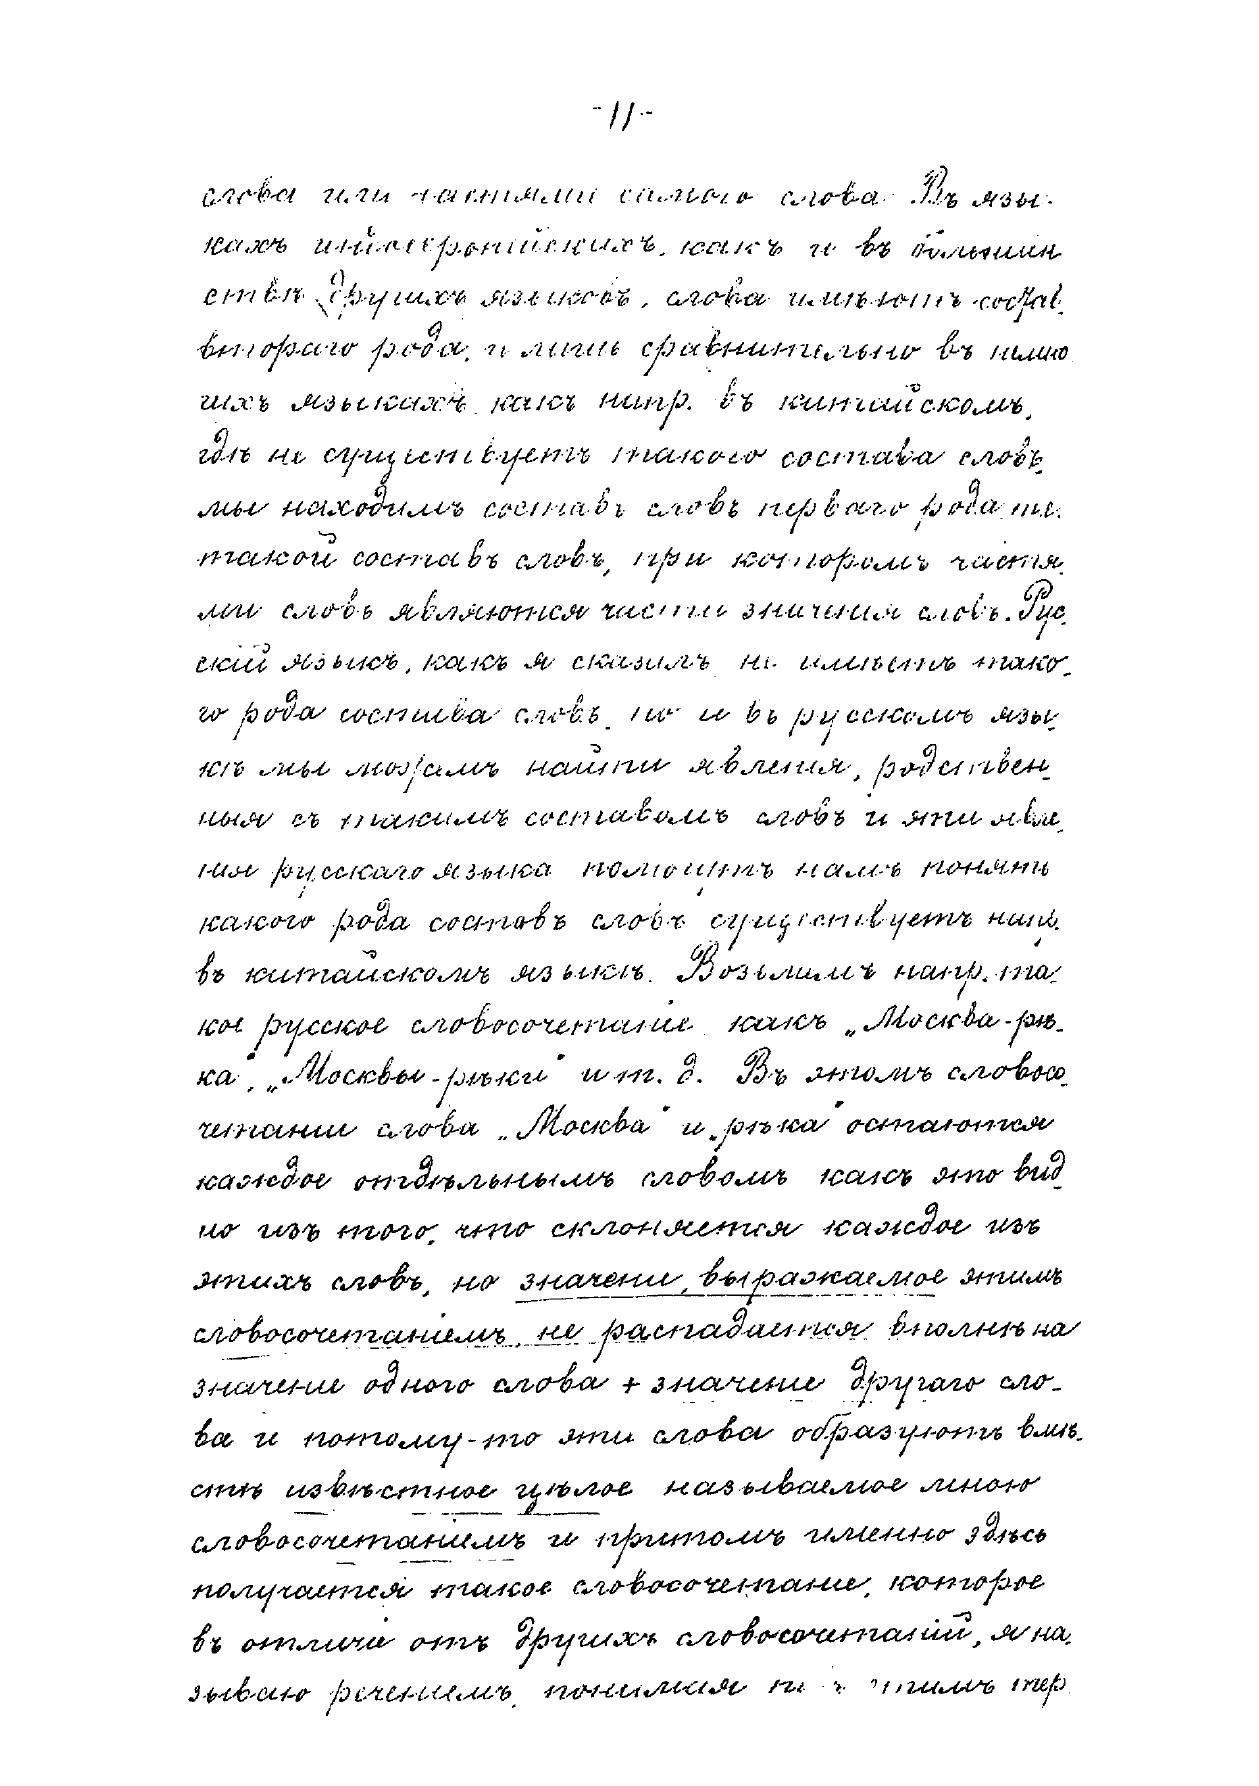 -11-
слова или частями самого слова. Въ язы-
кахъ индоевропейскихъ, какъ и въ большин
ствѣ другихъ языковъ, слова имѣютъ состав.
второго рода, и лишь сравнительно въ немно
гихъ языкахъ, какъ напр. въ китайскомъ,
гдѣ не существуетъ такого состава словъ,
мы находимъ составъ словъ перваго рода, т.е.
такой составъ словъ, при которомъ частя-
ми словъ являются части значения словъ. Рус-
скій языкъ, какъ я сказалъ, не имѣетъ тако-
го рода состава словъ, но и въ русскомъ язы-
кѣ мы можемъ найти явления, родствен-
ныя съ такимъ составомъ словъ и эти явле-
ния русскаго языка помогутъ намъ понять
какого рода составъ словъ существуетъ напр.
въ китайскомъ языкѣ. Возьмемъ напр. та-
кое русское словосочетаніе какъ „Москва-рѣ-
ка", „Москвы-рѣки" и т. д. Въ этомъ словосо-
четании слова „Москва" и „рѣка" остаются
каждое отдѣльнымъ словомъ какъ это вид-
но изъ того, что склоняется каждое изъ
этихъ словъ, но значение, выражаемое этимъ
словосочетаніемъ, не распадается вполнѣ на
значение одного слова + значение другаго сло-
ва и потому-то эти слова образуютъ вмѣ-
стѣ извѣстное цѣлое называемое мною
словосочетаніемъ и притомъ именно здѣсь
получается такое словосочетание, которое
въ отличіе отъ другихъ словосочетаній, я на-
зываю реченіемъ, понимая этимъ тер